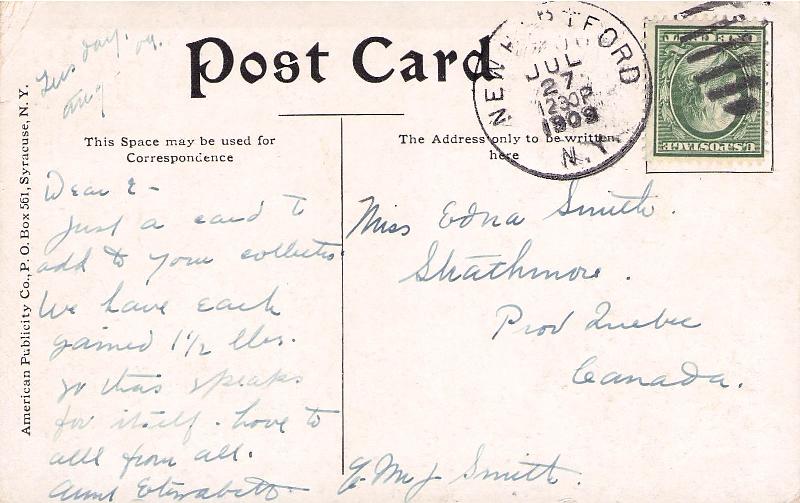 Tuesday. 09.
Aug
Post Card
NEW HARTFORD
JUL
27
1230P
1909
N.Y.
U.S. POSTAGE
This Space may be used for
Correspondence
The Address only to be written
here
American Publicity Co., P. O. Box 561, Syracuse, N. Y.
Dear E -
Just a card to
add to your collection
We have each
gained 1 1/2 lbs.
so this speaks
for itself. Love to
all from all.
Aunt Elizabeth
Miss Edna Smith.
Strathmore.
Prov Quebec
Canada.
Smith.